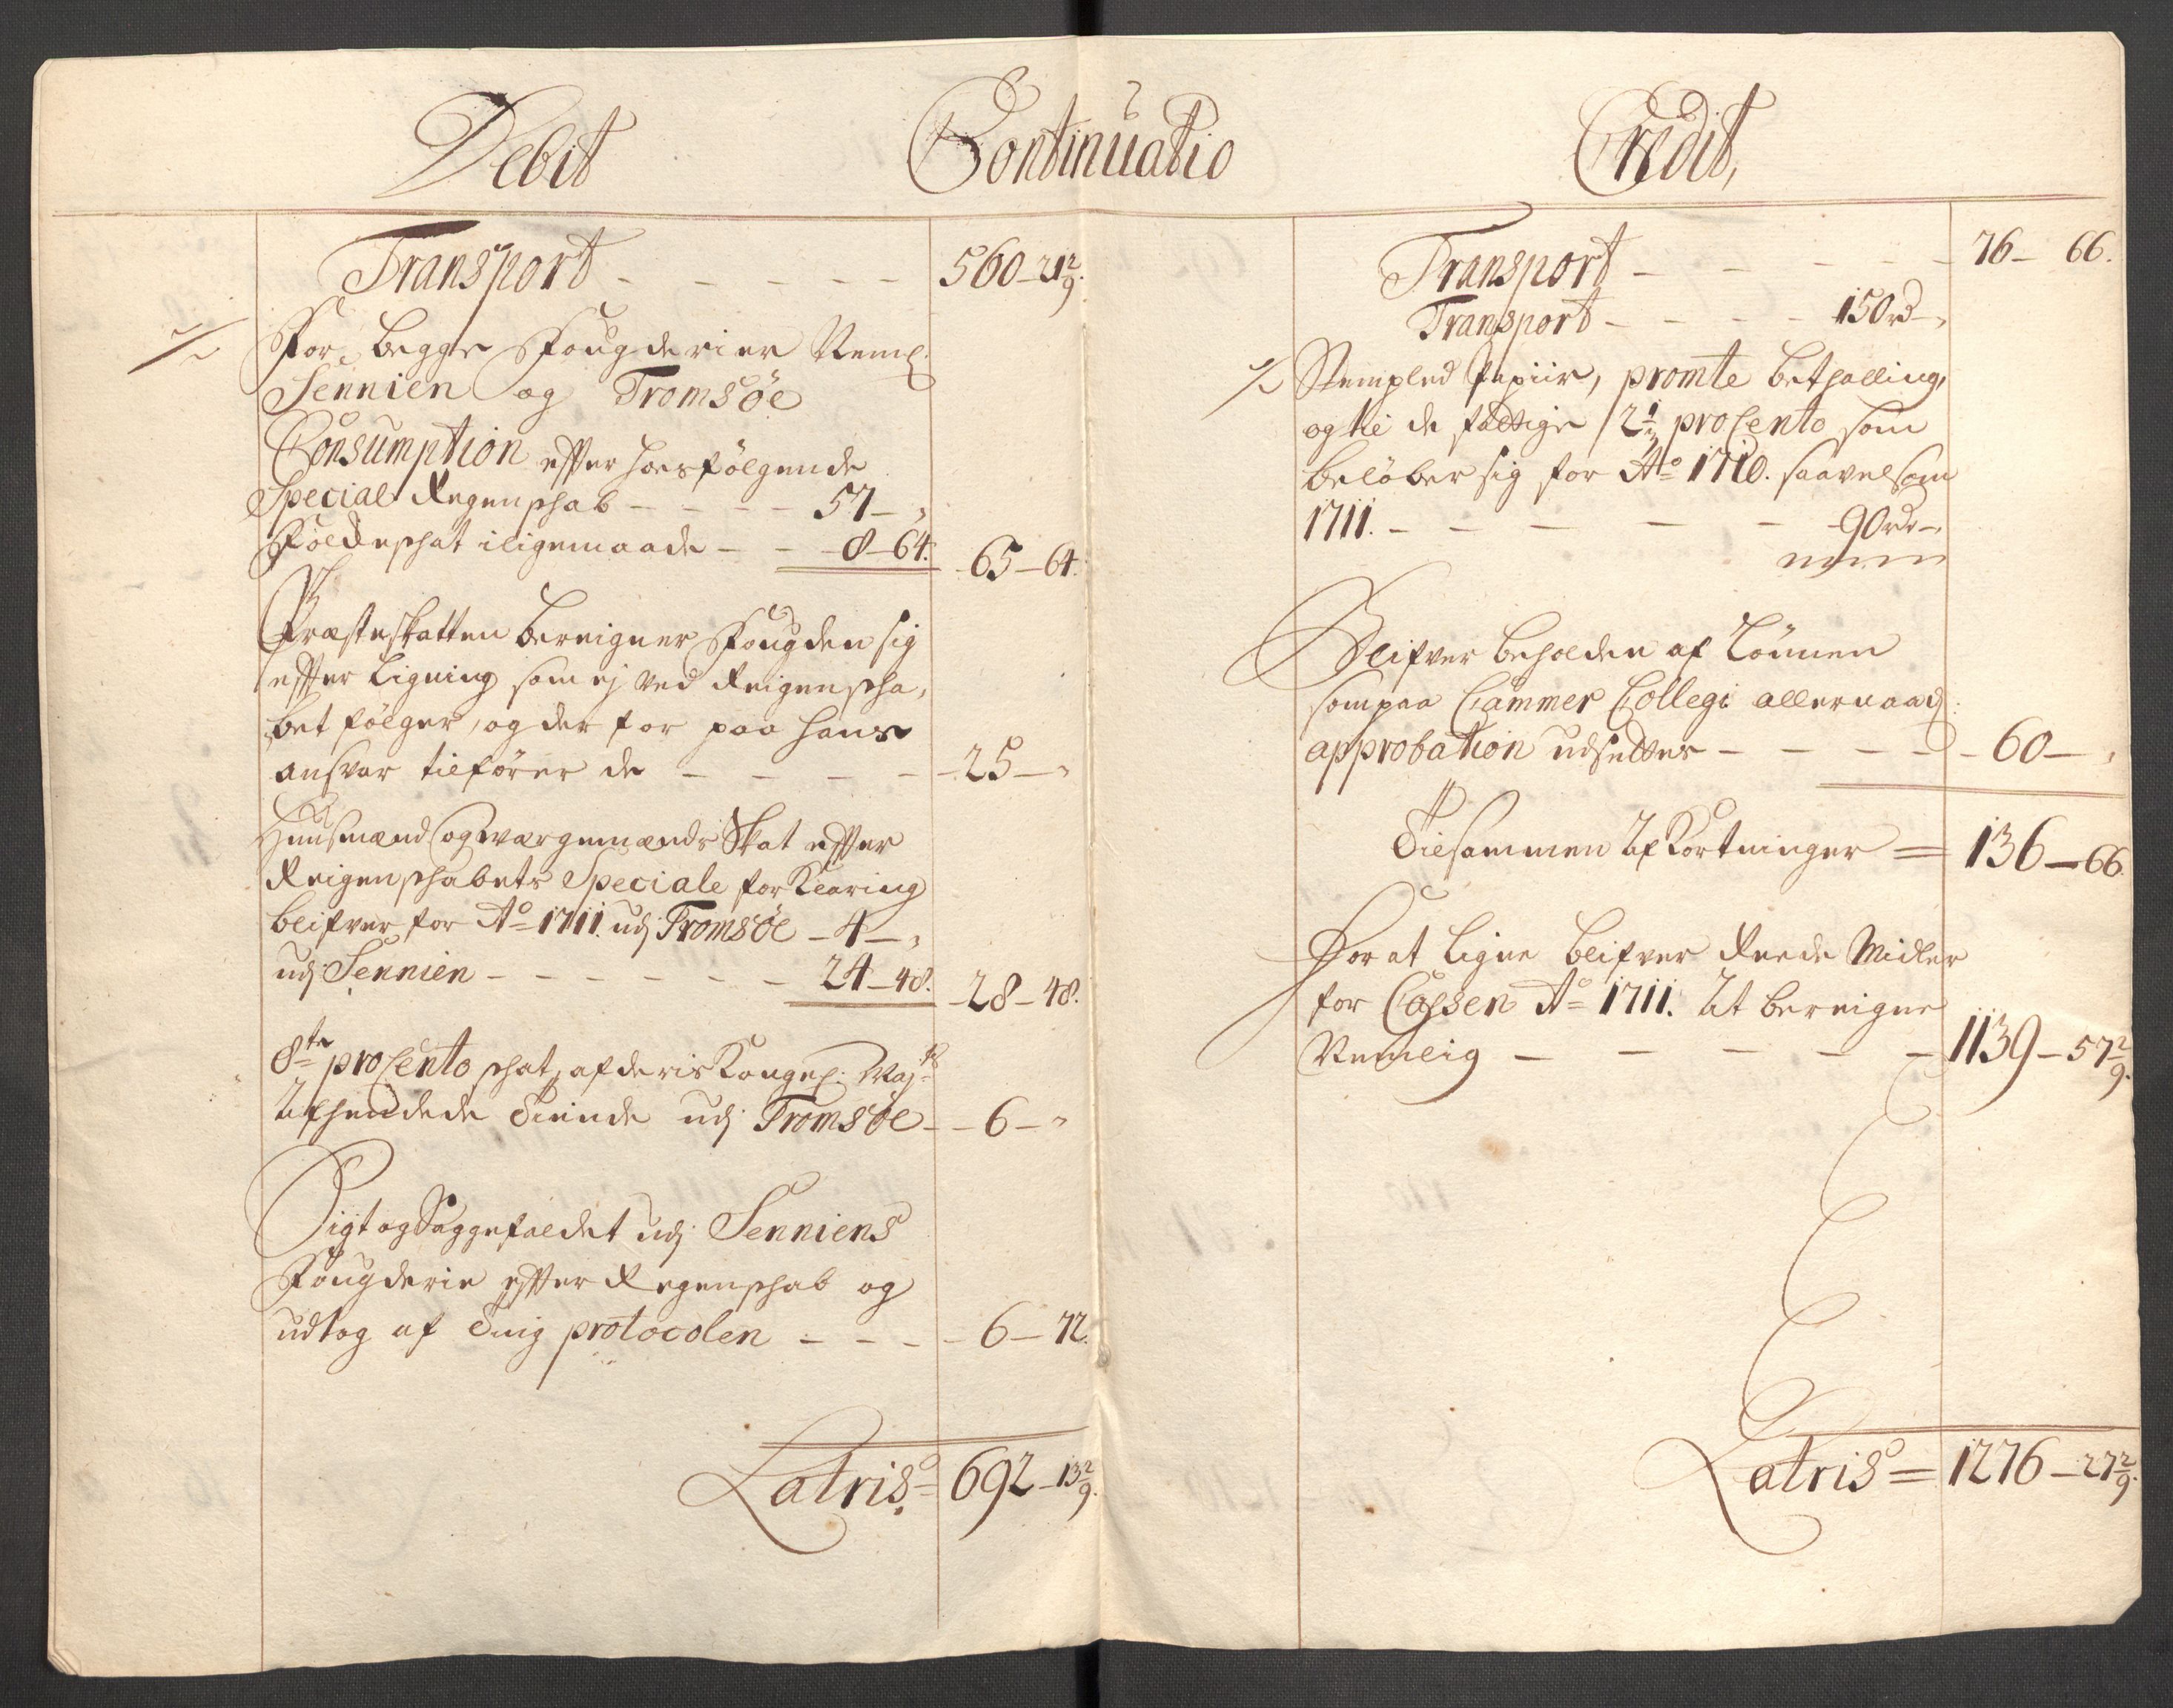 Debit Continuatio Credit,
Transport - - - - - 560-21 2/9.
For begge Fougderier Neml:
Sennien og Tromsöe
Consumption effter hosfölgende
Special Regenschab - - - - 57 - ,
Folckeschat iligemaade - - - 8-64. 65-64.
Præsteskatten beregner Fougden sig
effter ligning som ej ved Reigenscha,
bet fölger, og der for paa hans
ansvar tilförer de - - - - - 25 - ,
Huusmænd og Wærgemænds Skat effter
Reigenschabets Speciale forklaring
blifver for Ao 1711. udj Tromsöe - 4 - ,
udj Sennien - - - - - - 24-48. 28-48.
8te pro Cento schat, af deris Kongel: Maj:ts
Afhendede Tiende udj Tromsöe - - 6 - ,
Sigt og Saggefaldet udj Senniens
Fougderie effter Regenschab og
udtog af Ting protocolen - - - - 6-72.
Latris = 692-13 2/9.
Transport - - - - - 76- 66.
Transport - - - - 150 rd - ,
Stempled Papiir, promte bethalling,
og til de fattige / 2 1/2 pro Cento som
belöber sig for Ao 1710. saavelsom
1711. - - - - - 90 rdr - ,
Blifver beholden af Lönnen
som paa Cammer Collegi allernaad:
approbation udsettes - - - - - 60 - ,
Tilsammen Afkortninger = 136-66.
For at ligne blifver Reede Midler
for Cassen Ao 1711. At beregne
Nemlig - - - - - 1139-57 2/9.
Latris = 1276-27 2/9.